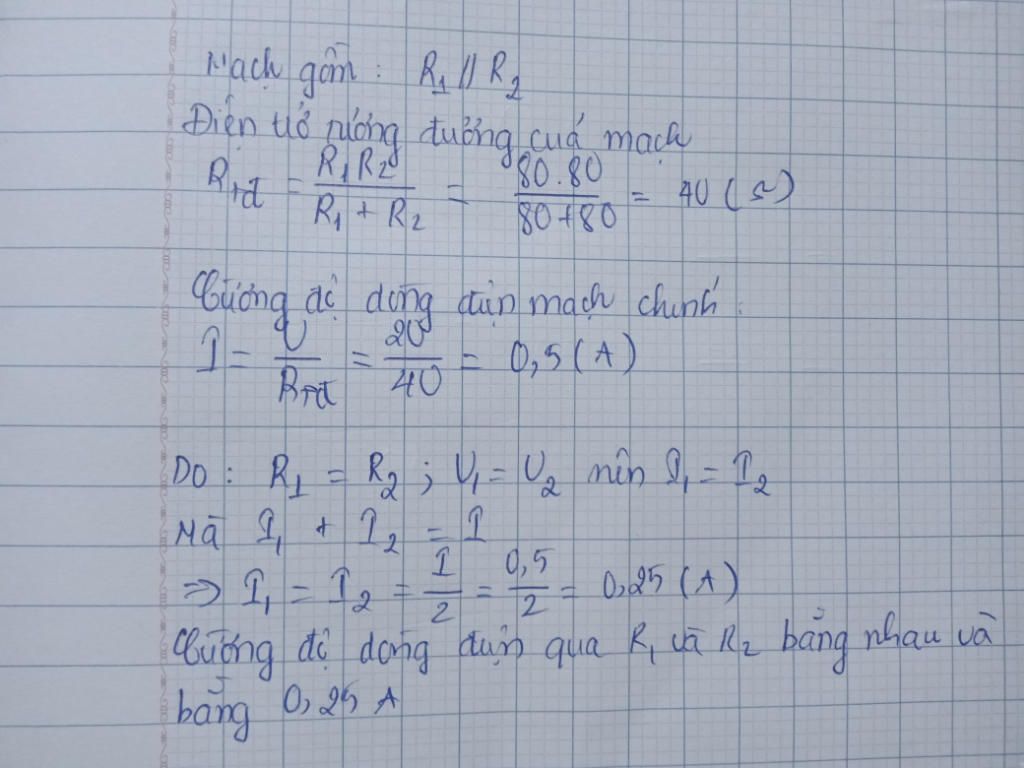 Mạch gồm : R₁ // R₂
Điện trở tương đương của mạch
Rtđ = R₁R₂ / (R₁ + R₂) = 80.80 / (80+80) = 40 (Ω)
Cường độ dòng điện mạch chính :
I = U / Rtđ = 20 / 40 = 0,5 (A)
Do : R₁ = R₂ ; U₁ = U₂ nên I₁ = I₂
Mà I₁ + I₂ = I
⇒ I₁ = I₂ = I / 2 = 0,5 / 2 = 0,25 (A)
Cường độ dòng điện qua R₁ và R₂ bằng nhau và
bằng 0,25 A